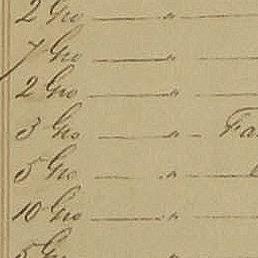 2 Gro — " —
7 Gro — " —
2 Gro — " —
3 Gro — " — Fa
5 Gro — " —
10 Gro — " —
5 Gro — " —